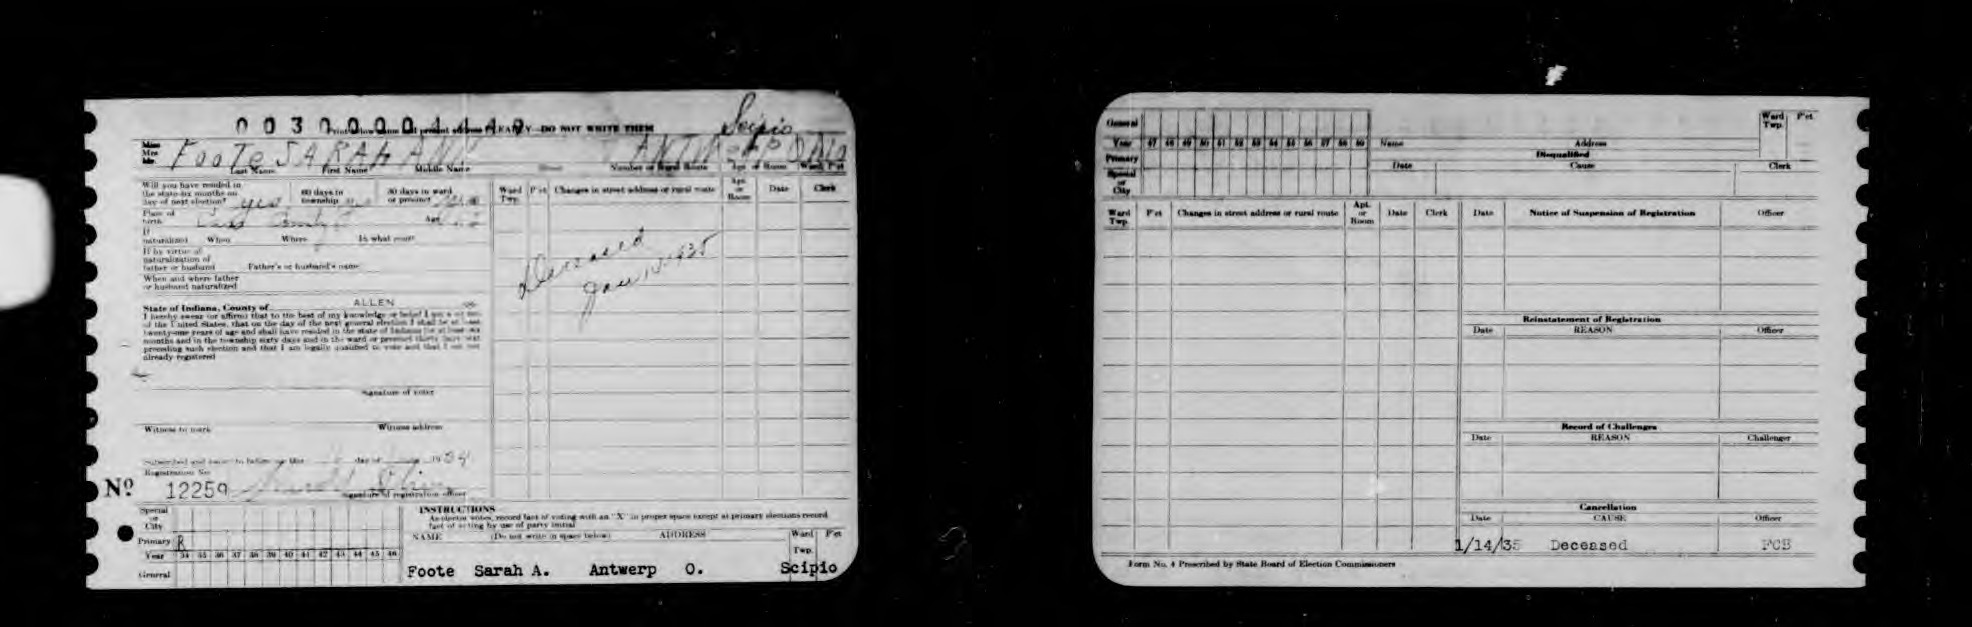 Scipio
00300004449
Print below name and present address PLEAINLY—DO NOT WRITE THEM
Miss
Mrs
Mr.
Foote SARAH ANN ANTWERP OHIO
Last Name First Name Middle Name Street Number or Rural Route Apt or Room Ward P'ct
Will you have resided in
the state six months on
day of next election? yes
60 days in
township yes
30 days in ward
or precinct
Place of
birth Age
If
naturalized When Where In what court
If by virtue of
naturalization of
father or husband Father's or husband's name
When and where father
or husband naturalized
State of Indiana, County of ALLEN ss:
I hereby swear (or affirm) that to the best of my knowledge or belief I am a citizen
of the United States, that on the day of the next general election I shall be at least
twenty-one years of age and shall have resided in the state of Indiana for at least six
months and in the township sixty days and in the ward or precinct thirty days next
preceding such election and that I am legally qualified to vote and that I am not
already registered
Signature of voter
Witness to mark Witness address
Subscribed and sworn to before me this day of 1934
Registration No
Nº 12259
Signature of registration officer
Ward Twp. P'ct Changes in street address or rural route Apt. or Room Date Clerk
Deceased
Jan 10 1935
Special
or
City
Primary R
Year 34 35 36 37 38 39 40 41 42 43 44 45 46
General
INSTRUCTIONS
As elector votes, record fact of voting with an "X" in proper space except at primary elections record
fact of voting by use of party initial
NAME (Do not write in space below) ADDRESS Ward Twp. P'ct
Foote Sarah A. Antwerp O. Scipio
General
Year 47 48 49 50 51 52 53 54 55 56 57 58 59
Primary
Special
or
City
Ward Twp. P'ct
Name Address
Disqualified
Date Cause Clerk
Ward Twp. P'ct Changes in street address or rural route Apt. or Room Date Clerk
Date Notice of Suspension of Registration Officer
Reinstatement of Registration
Date REASON Officer
Record of Challenges
Date REASON Challenger
Cancellation
Date CAUSE Officer
1/14/35 Deceased FCB
Form No. 4 Prescribed by State Board of Election Commissioners